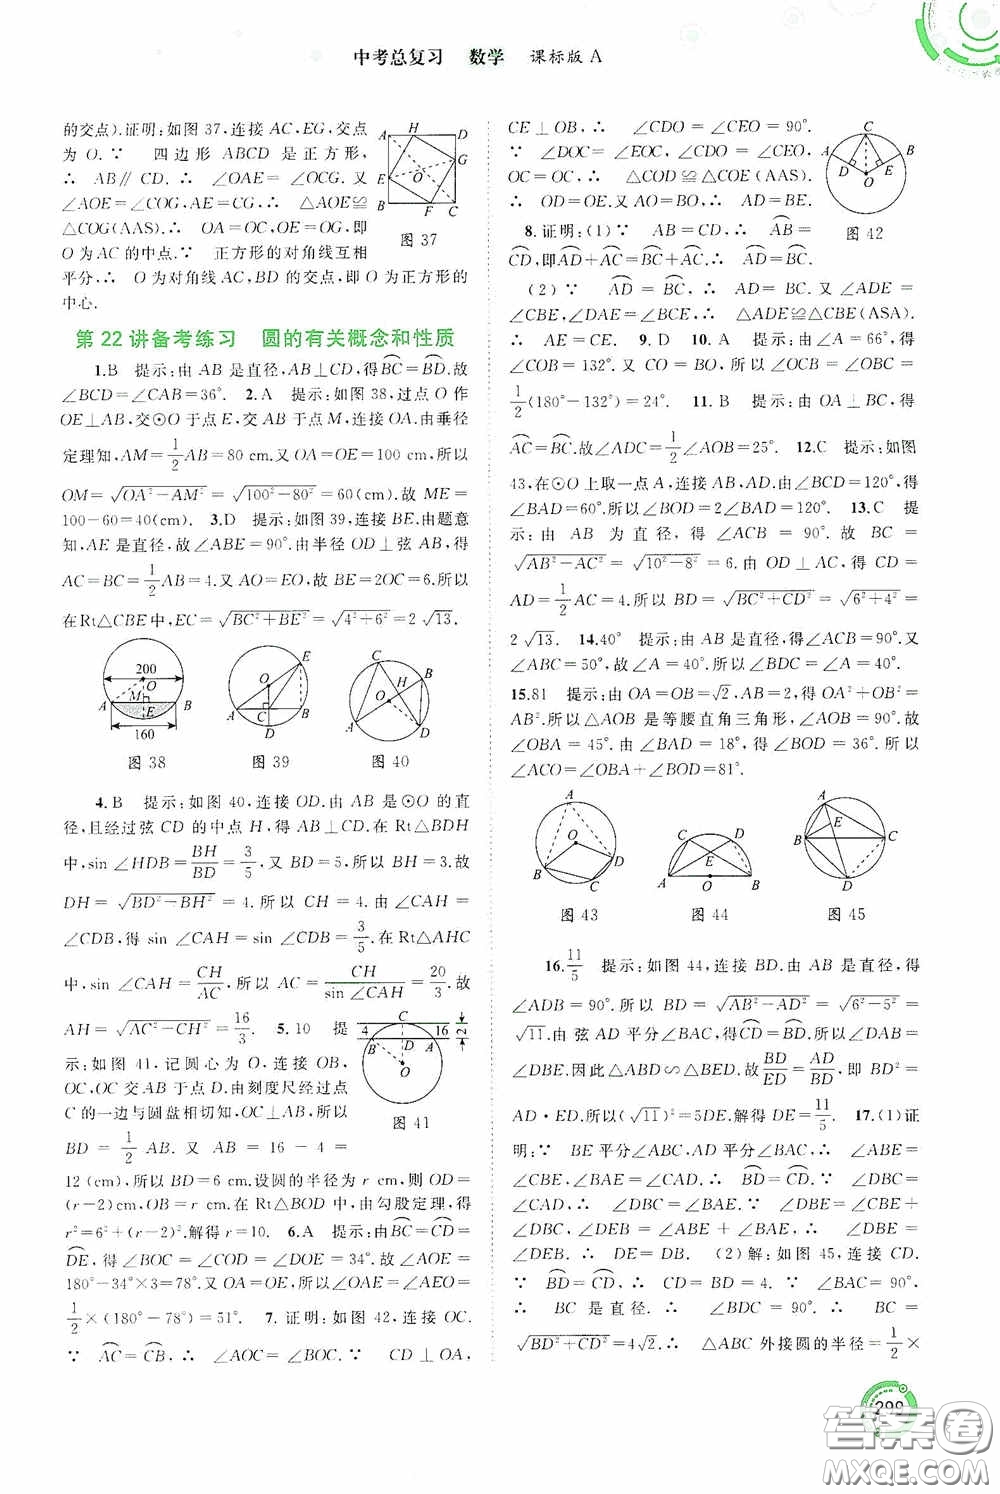 中考总复习　数学　课标版 A
的交点).证明:如图 37,连接 AC,EG,交点
为 O.∵　四边形 ABCD 是正方形,
∴　AB∥CD.∴　∠OAE=∠OCG.又
∠AOE=∠COG,AE=CG,∴　△AOE≌
△COG(AAS).∴　OA=OC,OE=OG,即
O 为 AC 的中点.∵　正方形的对角线互相
平分,∴　O 为对角线 AC,BD 的交点,即 O 为正方形的
中心.
A H D G E O B F C
图 37
第 22 讲备考练习　圆的有关概念和性质
1.B　提示:由 AB 是直径,AB⊥CD,得B͡C=B͡D.故
∠BCD=∠CAB=36°. 2.A　提示:如图 38,过点 O 作
OE⊥AB,交⊙O 于点 E,交 AB 于点 M,连接 OA.由垂径
定理知,AM=1/2AB=80 cm.又 OA=OE=100 cm,所以
OM=√(OA²-AM²)=√(100²-80²)=60(cm).故 ME=
100-60=40(cm). 3.D　提示:如图 39,连接 BE.由题意
知,AE 是直径,故∠ABE=90°.由半径 OD⊥弦 AB,得
AC=BC=1/2AB=4.又 AO=EO,故 BE=2OC=6.所以
在Rt△CBE中,EC=√(BC²+BE²)=√(4²+6²)=2√13.
200 O M A B E 160
E O A C B D
C H B O A D
图 38　图 39　图 40
4.B　提示:如图 40,连接 OD.由 AB 是⊙O 的直
径,且经过弦 CD 的中点 H,得 AB⊥CD.在 Rt△BDH
中,sin ∠HDB=BH/BD=3/5,又 BD=5,所以 BH=3.故
DH=√(BD²-BH²)=4.所以 CH=4.由 ∠CAH=
∠CDB,得 sin ∠CAH=sin ∠CDB=3/5.在 Rt△AHC
中,sin ∠CAH=CH/AC,所以 AC=CH/sin ∠CAH=20/3.故
AH=√(AC²-CH²)=16/3. 5.10　提
示:如图 41,记圆心为 O,连接 OB,
OC,OC 交 AB 于点 D.由刻度尺经过点
C 的一边与圆盘相切知,OC⊥AB,所以
BD=1/2 AB.又 AB=16-4=
4 C 16 2 B D A O
图 41
12 (cm),所以 BD=6 cm.设圆的半径为 r cm,则 OD=
(r-2) cm,OB=r cm.在 Rt△BOD 中,由勾股定理,得
r²=6²+(r-2)².解得 r=10. 6.A　提示:由B͡C=C͡D=
D͡E,得∠BOC=∠COD=∠DOE=34°.故∠AOE=
180°-34°×3=78°.又 OA=OE,所以∠OAE=∠AEO=
1/2×(180°-78°)=51°. 7. 证明:如图 42,连接 OC.
∵　A͡C=C͡B,∴　∠AOC=∠BOC.∵　CD⊥OA,
CE⊥OB,∴　∠CDO=∠CEO=90°.
∵　∠DOC=∠EOC,∠CDO=∠CEO,
OC=OC,∴　△COD≌△COE(AAS).
∴　OD=OE.又 AO=BO,∴　AD=BE.
C A B D E O
图 42
8.证明:(1)∵　AB=CD,∴　A͡B=
C͡D,即A͡D+A͡C=B͡C+A͡C.∴　A͡D=B͡C.
(2)∵　A͡D=B͡C,∴　AD=BC.又∠ADE=
∠CBE,∠DAE=∠BCE,∴　△ADE≌△CBE(ASA).
∴　AE=CE. 9.D　10.A　提示:由∠A=66°,得
∠COB=132°.又 CO=BO,所以∠BCO=
1/2(180°-132°)=24°. 11.B　提示:由 OA⊥BC,得
A͡C=B͡C.故∠ADC=1/2∠AOB=25°. 12.C　提示:如图
43,在⊙O 上取一点 A,连接 AB,AD.由∠BCD=120°,得
∠BAD=60°.所以∠BOD=2∠BAD=120°. 13.C　提
示:由 AB 为直径,得∠ACB=90°.故 BC=
√(AB²-AC²)=√(10²-8²)=6.由 OD⊥AC,得 CD=
AD=1/2AC=4.所以 BD=√(BC²+CD²)=√(6²+4²)=
2√13. 14.40°　提示:由 AB 是直径,得∠ACB=90°.又
∠ABC=50°,故∠A=40°.所以∠BDC=∠A=40°.
15.81　提示:由 OA=OB=√2,AB=2,得 OA²+OB²=
AB².所以△AOB 是等腰直角三角形,∠AOB=90°.故
∠OBA=45°.由∠BAD=18°,得∠BOD=36°.所以
∠ACO=∠OBA+∠BOD=81°.
A O B D C
C D E A O B
A E B C D
图 43　图 44　图 45
16.11/5　提示:如图 44,连接 BD.由 AB 是直径,得
∠ADB=90°.所以 BD=√(AB²-AD²)=√(6²-5²)=
√11.由 弦 AD 平分∠BAC,得C͡D=B͡D.所以∠DAB=
∠DBE.因此△ABD∽△BED.故BD/ED=AD/BD,即 BD²=
AD·ED.所以(√11)²=5DE.解得 DE=11/5. 17.(1)证
明:∵　BE 平分∠ABC,AD 平分∠BAC,∴　∠ABE=
∠CBE,∠BAE=∠CAD.∴　B͡D=C͡D.∴　∠DBC=
∠CAD.∴　∠DBC=∠BAE.∵　∠DBE=∠CBE+
∠DBC,∠DEB=∠ABE+∠BAE,∴　∠DBE=
∠DEB.∴　DE=DB. (2)解:如图 45,连接 CD.
∵　B͡D=C͡D,∴　CD=BD=4.∵　∠BAC=90°,
∴　BC 是直径.∴　∠BDC=90°.∴　BC=
√(BD²+CD²)=4√2.∴　△ABC 外接圆的半径=1/2×
299
答案圈
MXQE.COM